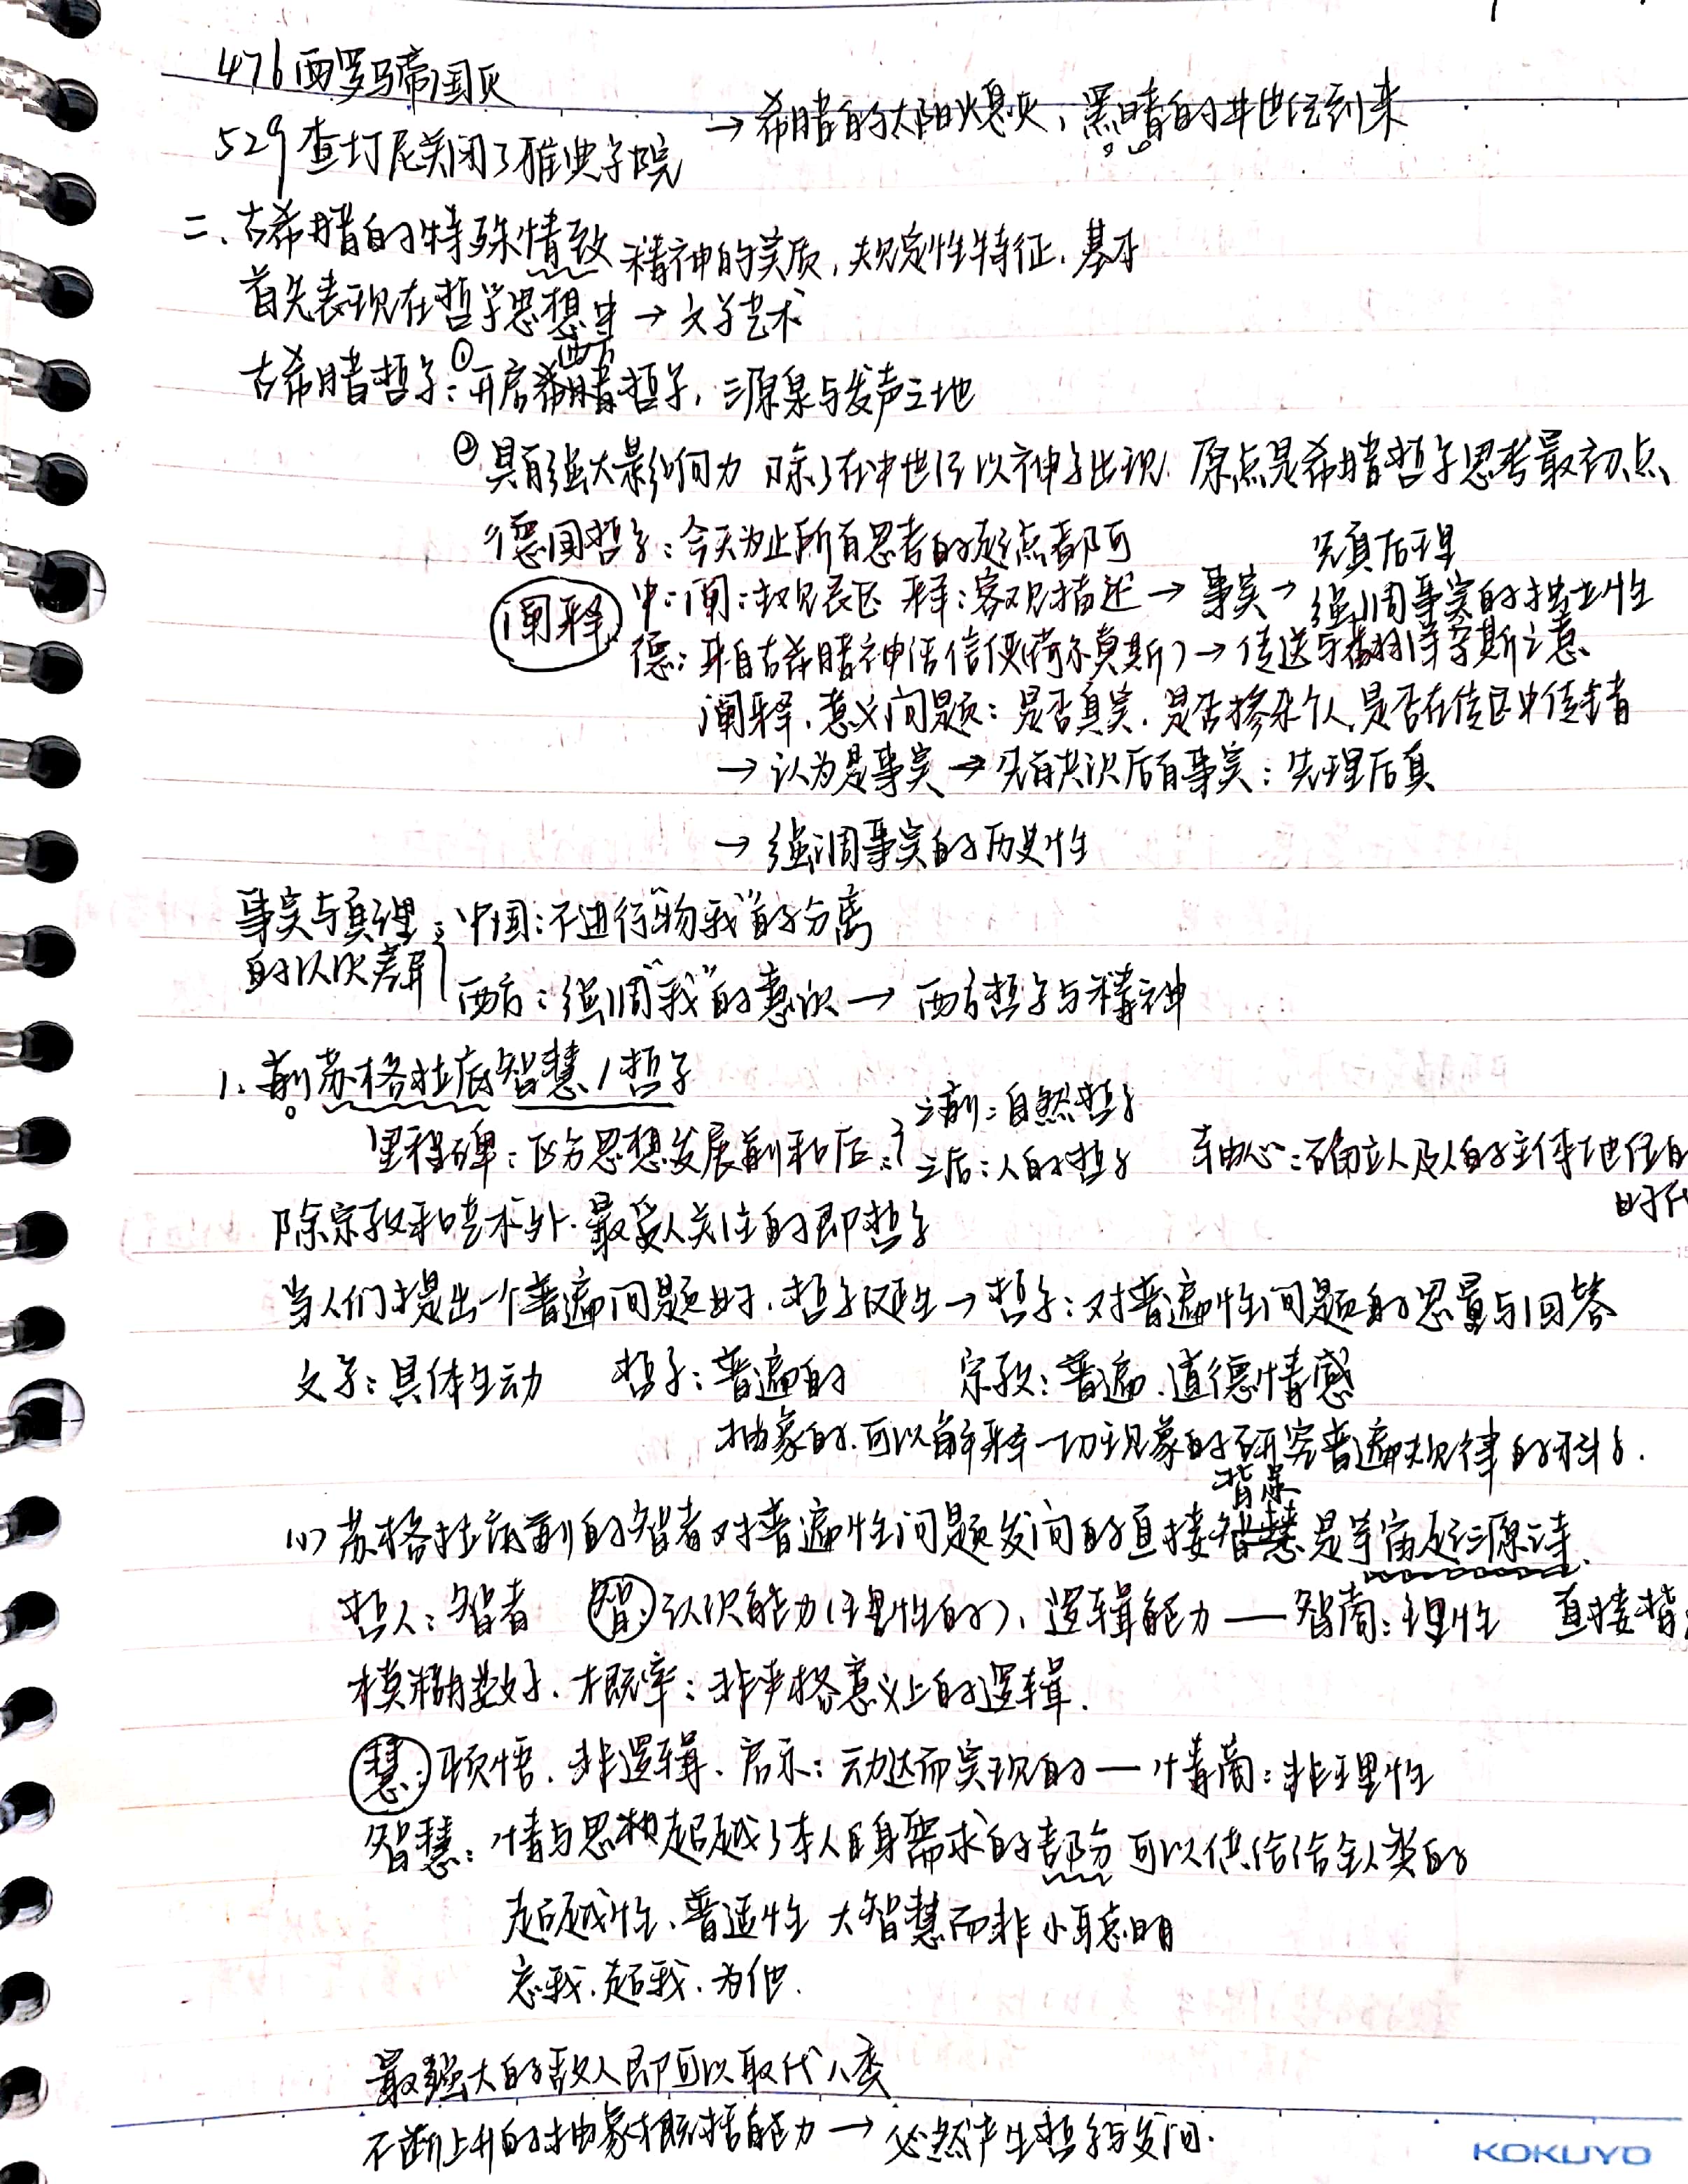 476西罗马帝国灭
529查士丁尼关闭了雅典学院 → 希腊的太阳熄灭，黑暗的中世纪到来
二、古希腊的特殊情致 精神的实质，规定性特征，基本
首先表现在哲学思想中 → 文学艺术
古希腊哲学：①开启西方哲学，源泉与发声之地
②具有强大影响力 除了在中世纪以神学出现，原点是希腊哲学思考最初点
德国哲学：今天为止所有思考的起点都可
先真后理
阐释 中：阐：主观表达 释：客观描述 → 事实 → 强调事实的 性
德：来自古希腊神话信使（荷尔莫斯）→ 传送与翻译宙斯之意
阐释，意义问题：是否真实，是否掺杂个人，是否在传达中传错者
→ 认为是事实 → 先有共识后有事实：先理后真
→ 强调事实的历史性
事实与真理的认识差异 中国：不进行“物我”的分离
西方：强调“我”的意识 → 西方哲学与精神
1. 前苏格拉底智慧/哲学
里程碑：西方思想发展前和后：之前：自然哲学
之后：人的哲学 轴心：确立人及人的主体地位的
时代
除宗教和艺术外，最受人关注的即哲学
当人们提出一个普遍问题时，哲学诞生 → 哲学：对普遍性问题的思量与回答
文学：具体生动 哲学：普遍的 宗教：普遍、道德情感
抽象的，可以解释一切现象的研究普遍规律的科学.
(1) 苏格拉底前的智者对普遍性问题发问的直接指康是宇宙起源诗.
哲人：智者 智：认识能力（理性的）、逻辑能力 — 智商：理性 直接指
模糊数学、概率：非严格意义上的逻辑.
慧：顿悟、非逻辑、启示： 达而实现的 — 情商：非理性
智慧：情与思想超越了本人自身需求的部分 可以供给给全人类的
超越性、普适性 大智慧而非小聪明
忘我、超我、为他.
最强大的敌人即可以取代人类
不断上升的抽象概括能力 → 必然产生哲学与发问.
KOKUYO